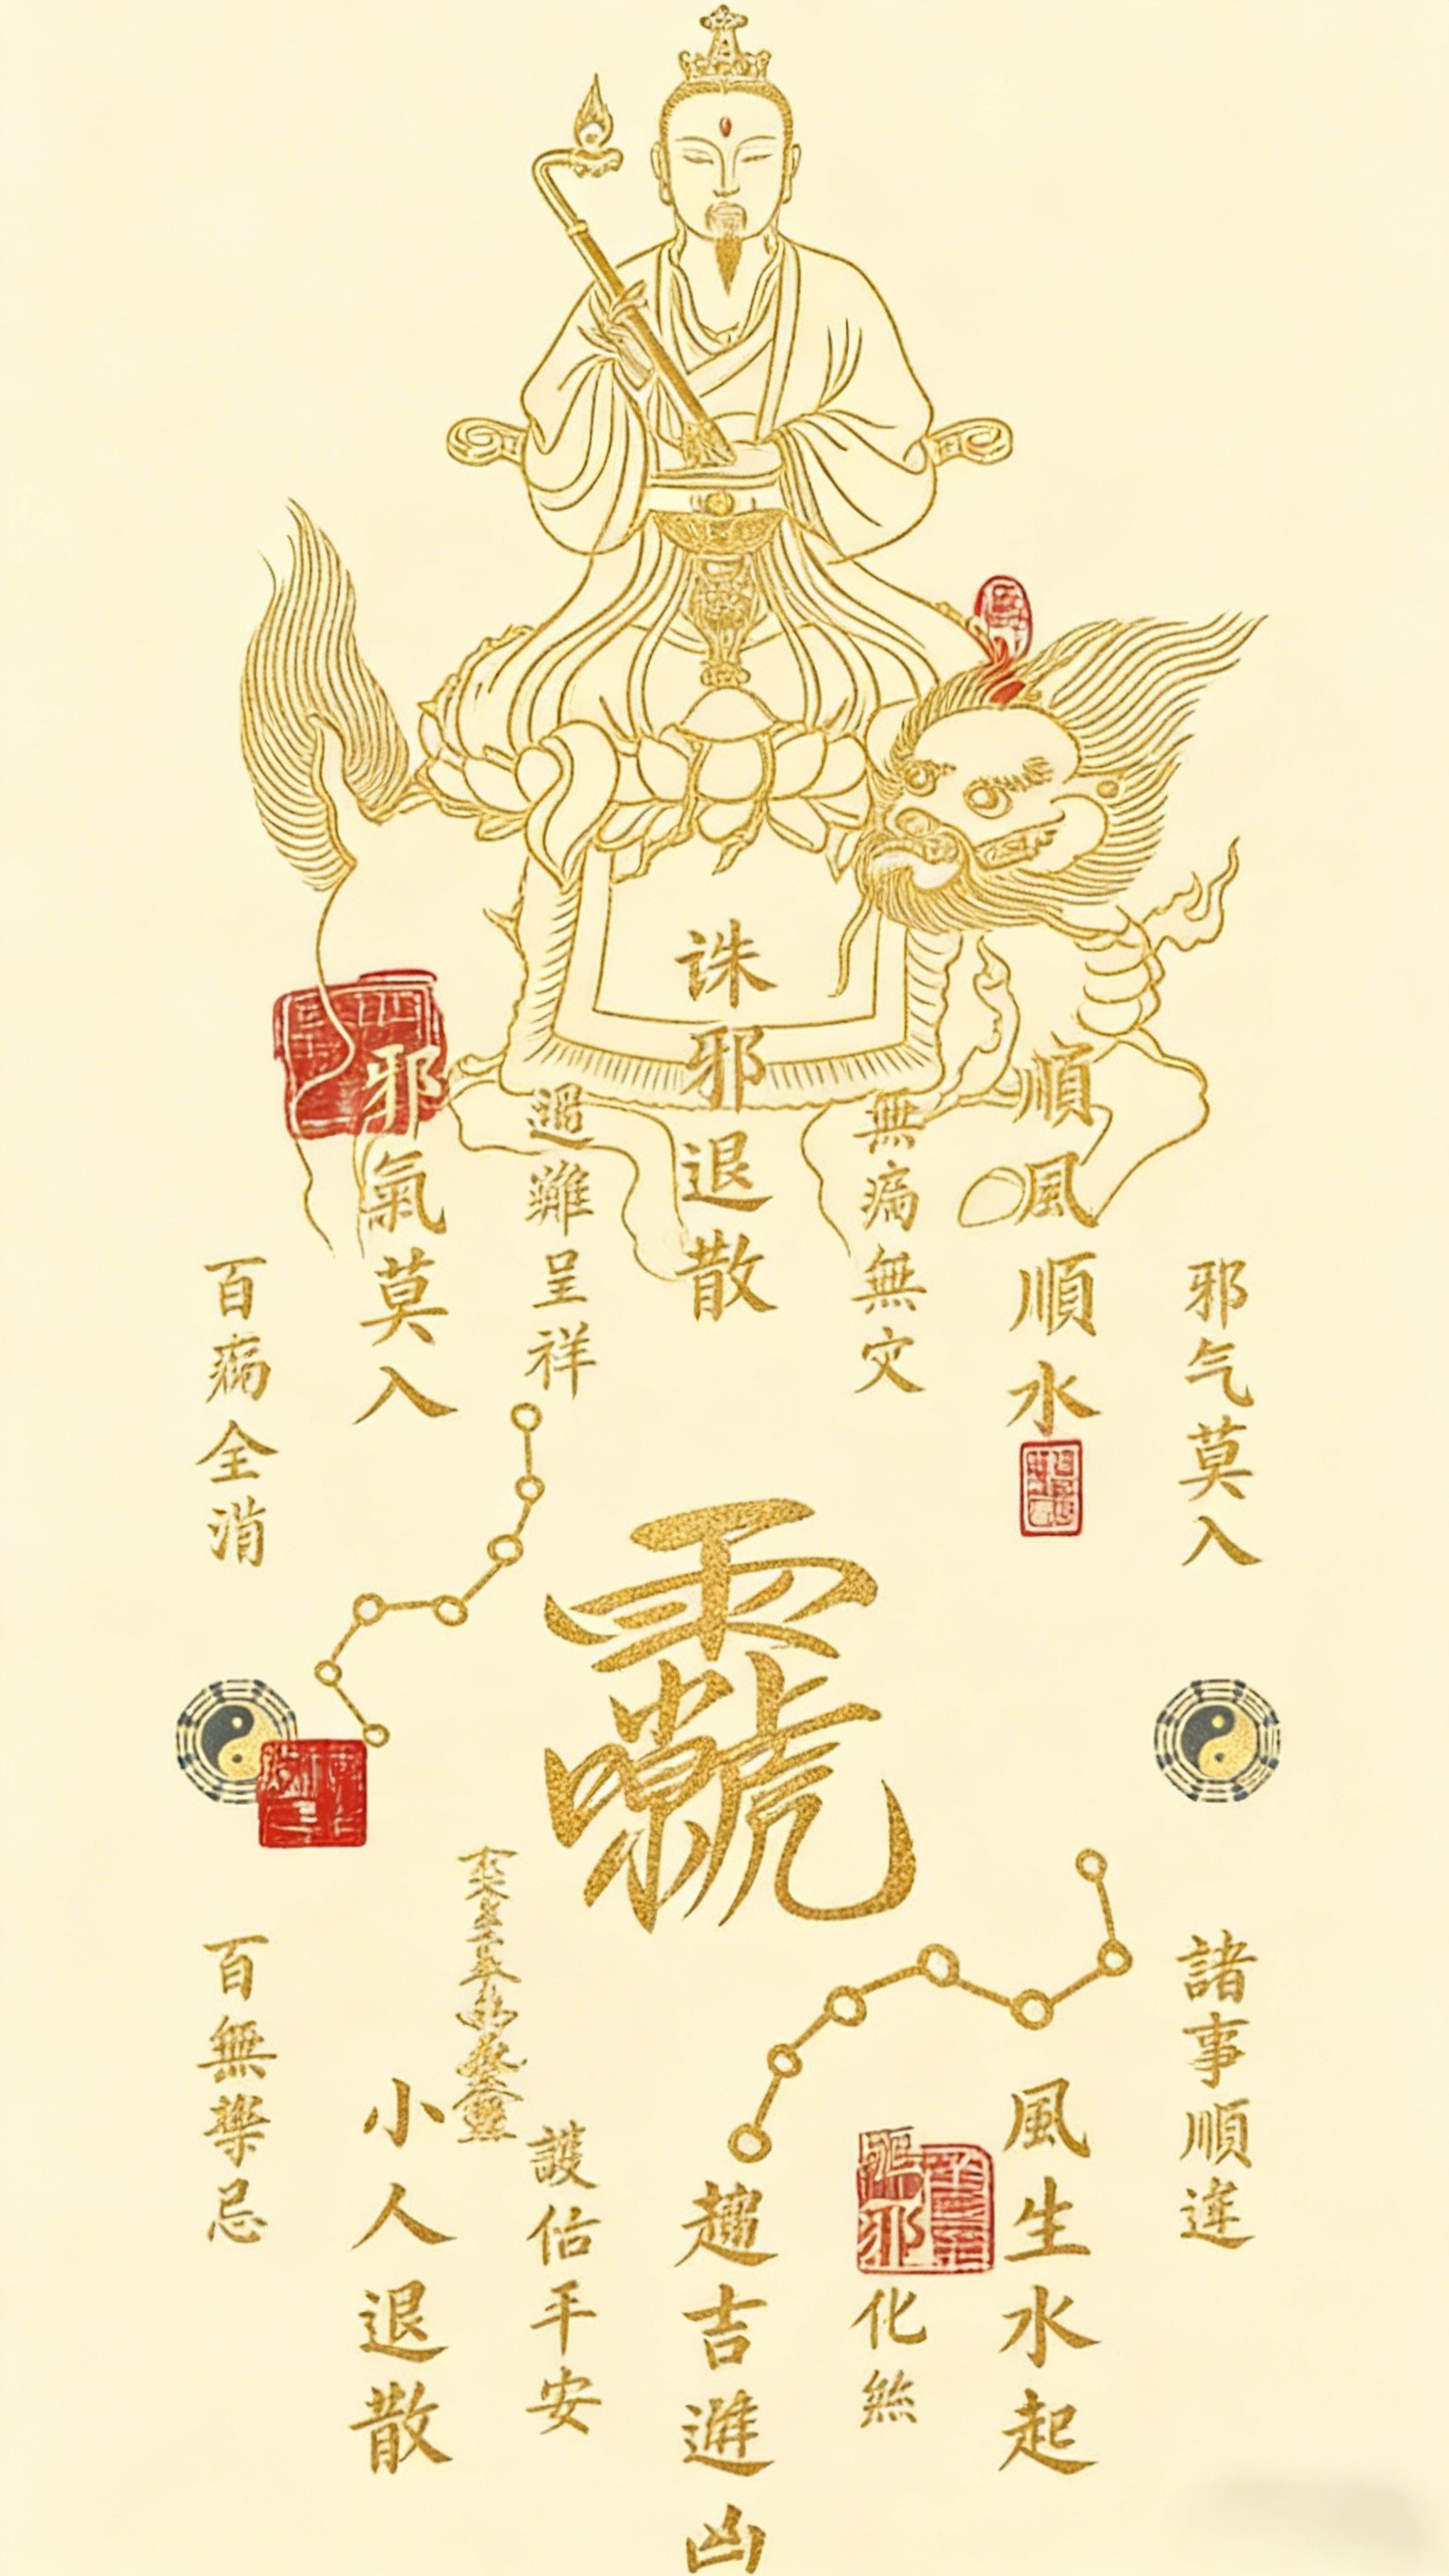 邪气莫入
順風順水
無病無灾
誅邪退散
遇難呈祥
邪氣莫入
百病全消
諸事順遂
風生水起
驅邪化煞
趨吉避凶
護佑平安
小人退散
百無禁忌